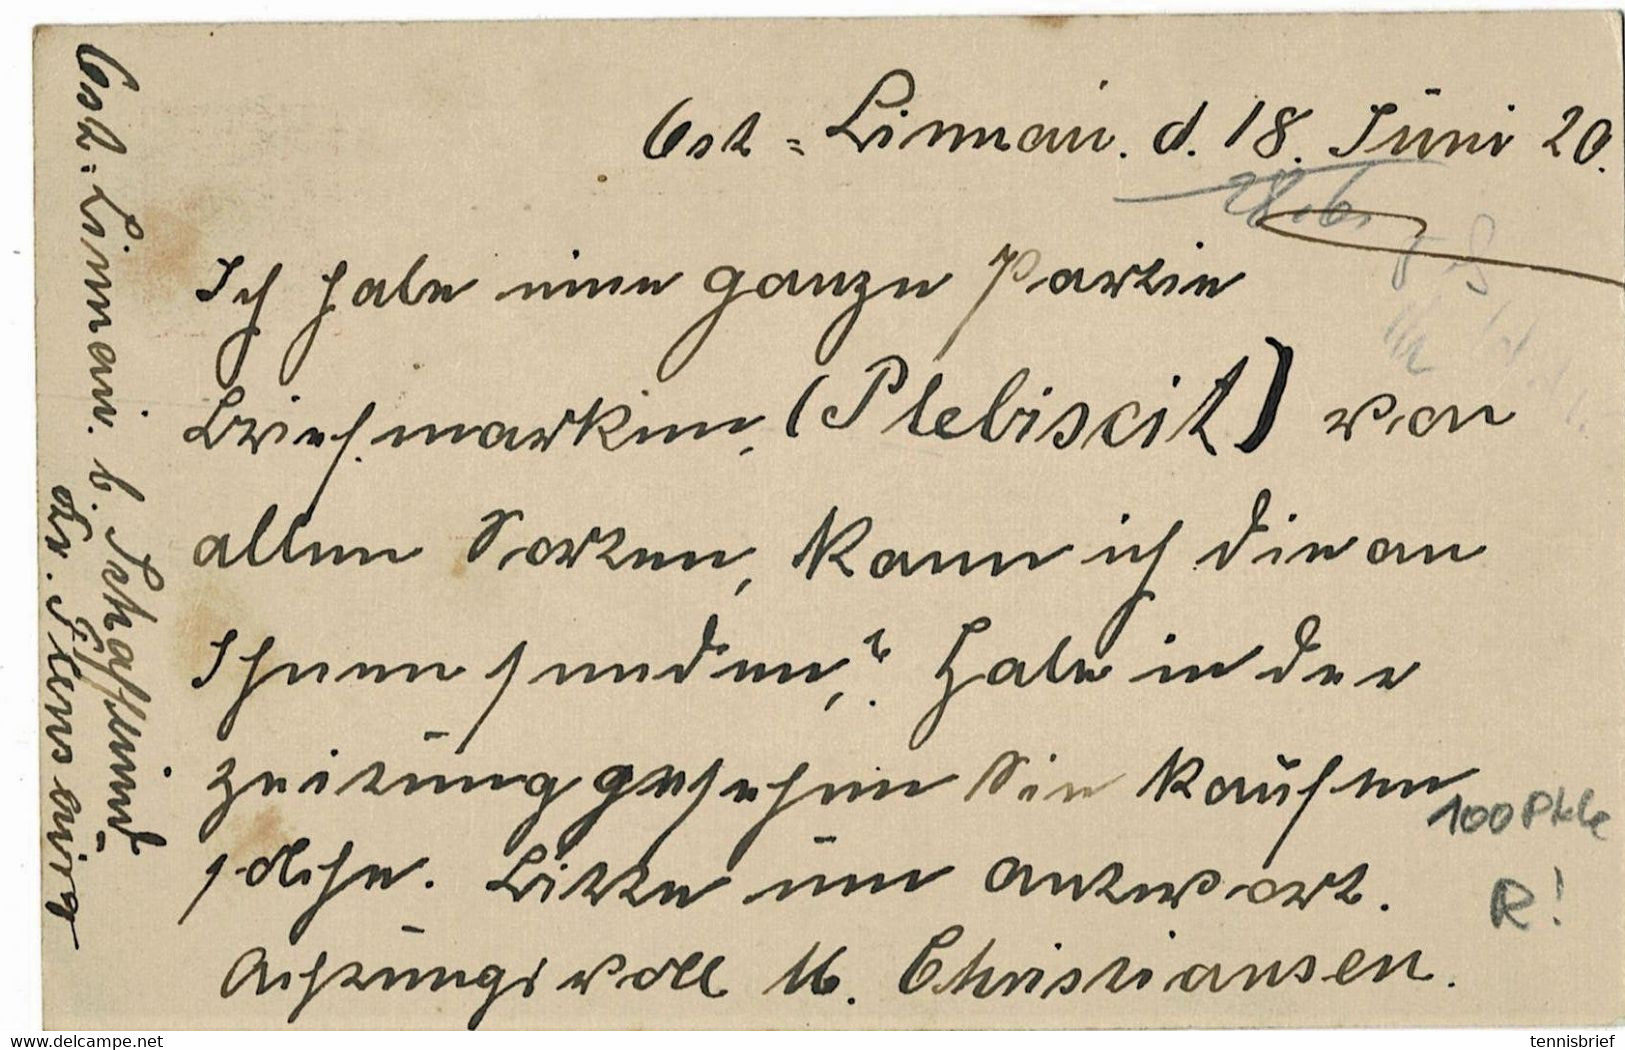 Ost-Linnau. d. 18. Juni 20.
28.6.
Ich habe eine ganze Partie
Briefmarken, (Plebiscit) von
allen Sorten, kann ich die an
Ihnen senden,? Habe in der
Zeitung gesehen Sie kaufen
solche. Bitte um Antwort.
Achtungsvoll M. Christiansen.
Ost-Linnau. b. Schafflund
Kr. Flensburg
100 Pkte
R!
delcampe.net
tennisbrief